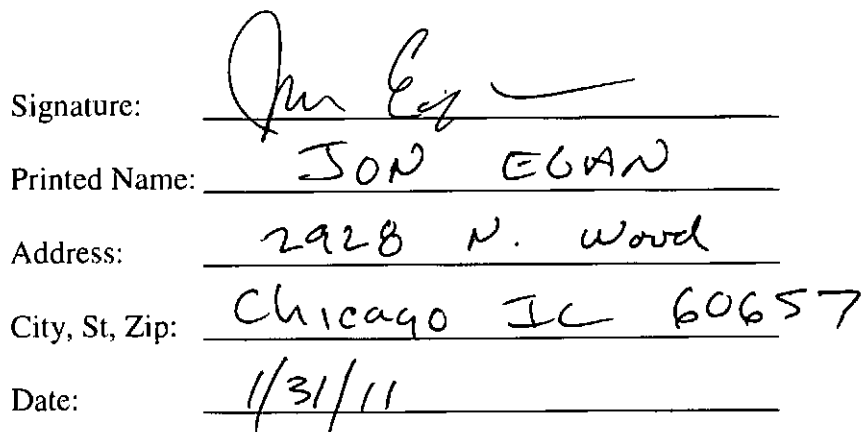 Signature: Jon Egan
Printed Name: JON EGAN
Address: 2928 N. Wood
City, St, Zip: Chicago IL 60657
Date: 1/31/11